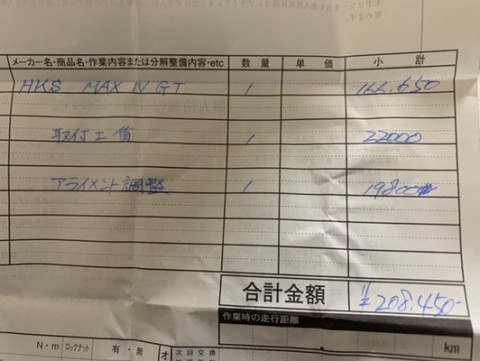 メーカー名・商品名・作業内容または分解整備内容・etc 数量 単価 小計
HKS MAX IV GT 1 166.650
取付工賃 1 22000
アライメント調整 1 19800
合計金額 ¥208.450-
作業時の走行距離
km
N・m ロックナット 有・無 オ 次回交換